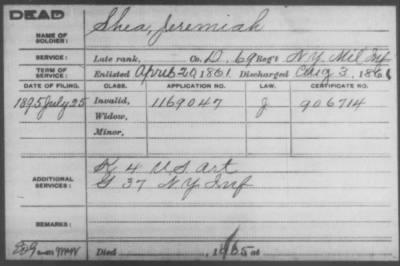 DEAD
NAME OF SOLDIER: Shea, Jeremiah
SERVICE: Late rank, Co. D, 69 Reg't N.Y. Mil Inf
TERM OF SERVICE: Enlisted April 20, 1861 Discharged Aug 3, 1861
DATE OF FILING. CLASS. APPLICATION NO. LAW. CERTIFICATE NO.
1895 July 25 Invalid, 1169047 J 906714
Widow,
Minor,
ADDITIONAL SERVICES: K 4 US Art
G 37 N.Y. Inf
REMARKS:
Died , 1 at